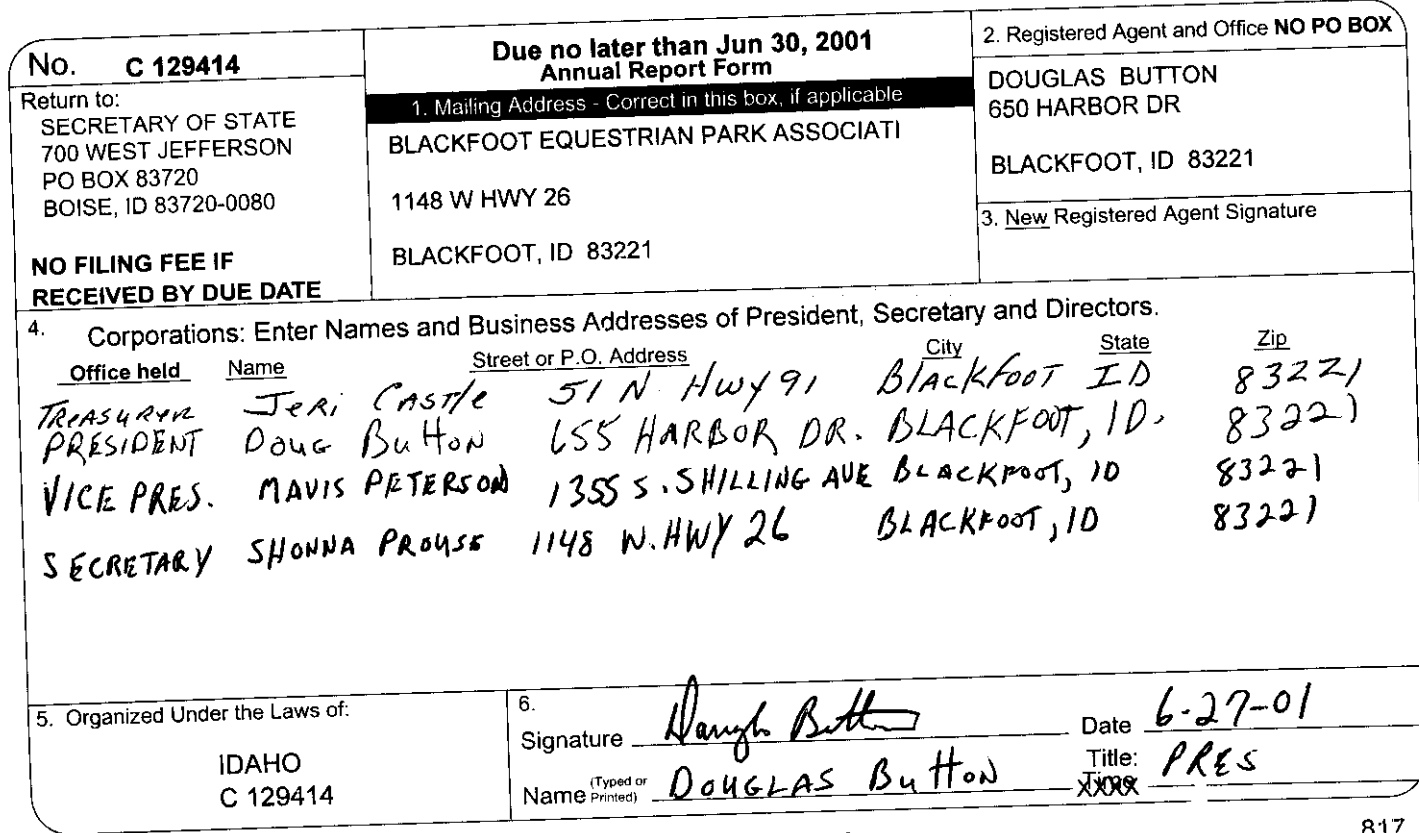 No. C 129414
Return to:
SECRETARY OF STATE
700 WEST JEFFERSON
PO BOX 83720
BOISE, ID 83720-0080
NO FILING FEE IF
RECEIVED BY DUE DATE
Due no later than Jun 30, 2001
Annual Report Form
1. Mailing Address - Correct in this box, if applicable
BLACKFOOT EQUESTRIAN PARK ASSOCIATI
1148 W HWY 26
BLACKFOOT, ID 83221
2. Registered Agent and Office NO PO BOX
DOUGLAS BUTTON
650 HARBOR DR
BLACKFOOT, ID 83221
3. New Registered Agent Signature
4. Corporations: Enter Names and Business Addresses of President, Secretary and Directors.
Office held Name Street or P.O. Address City State Zip
TREASURER JERI CASTLE 51 N HWY 91 BLACKFOOT ID 83221
PRESIDENT DOUG BUTTON 655 HARBOR DR. BLACKFOOT, ID. 83221
VICE PRES. MAVIS PETERSON 1355 S. SHILLING AVE BLACKFOOT, ID 83221
SECRETARY SHONNA PROUSE 1148 W. HWY 26 BLACKFOOT, ID 83221
5. Organized Under the Laws of:
IDAHO
C 129414
6.
Signature Douglas Button Date 6-27-01
Name (Typed or Printed) DOUGLAS BUTTON Title: PRES
817